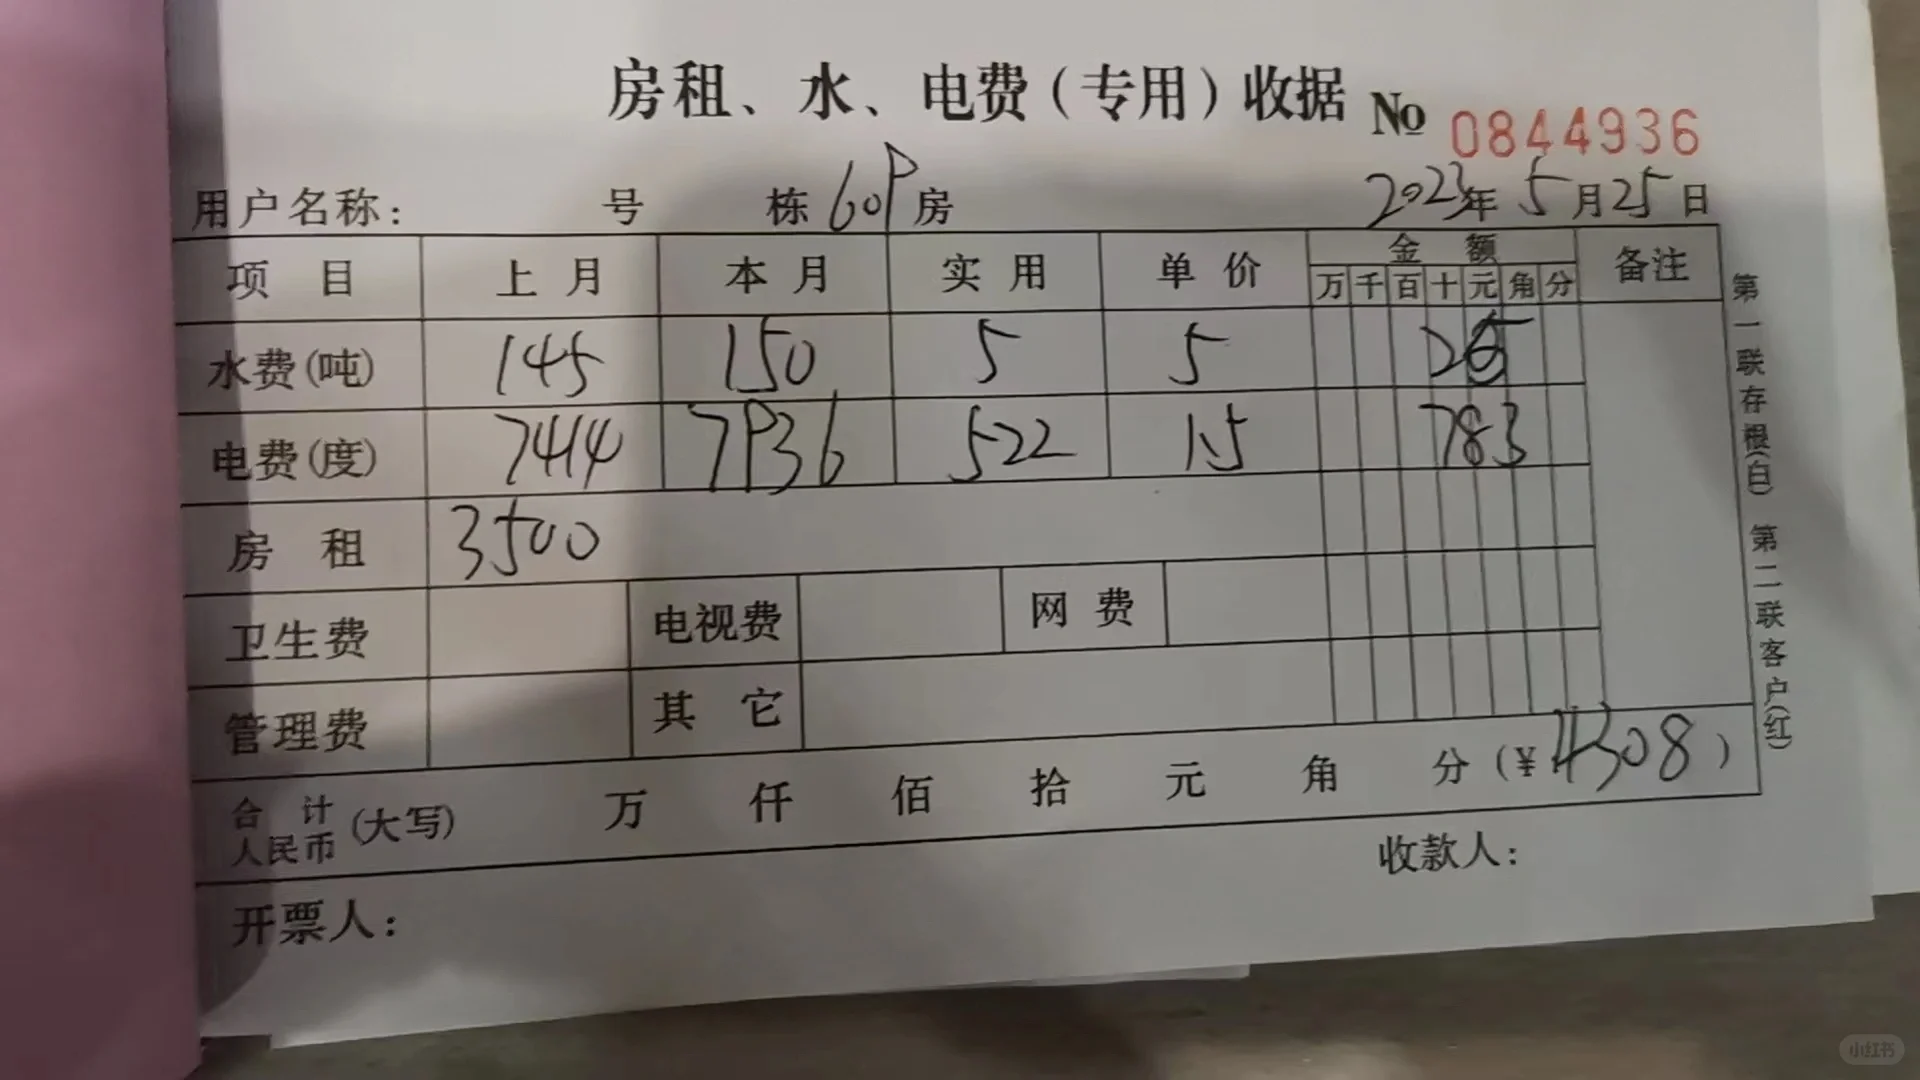 房租、水、电费(专用)收据 No 0844936
用户名称: 号 栋 609 房 2023年 5月25日
项目 上月 本月 实用 单价 金额 备注
万 千 百 十 元 角 分
水费(吨) 145 150 5 5 25
电费(度) 7414 7936 522 1.5 783
房租 3500
卫生费 电视费 网费
管理费 其它
合计人民币(大写) 万 仟 佰 拾 元 角 分(¥4308)
开票人: 收款人:
第一联存根(白) 第二联客户(红)
小红书